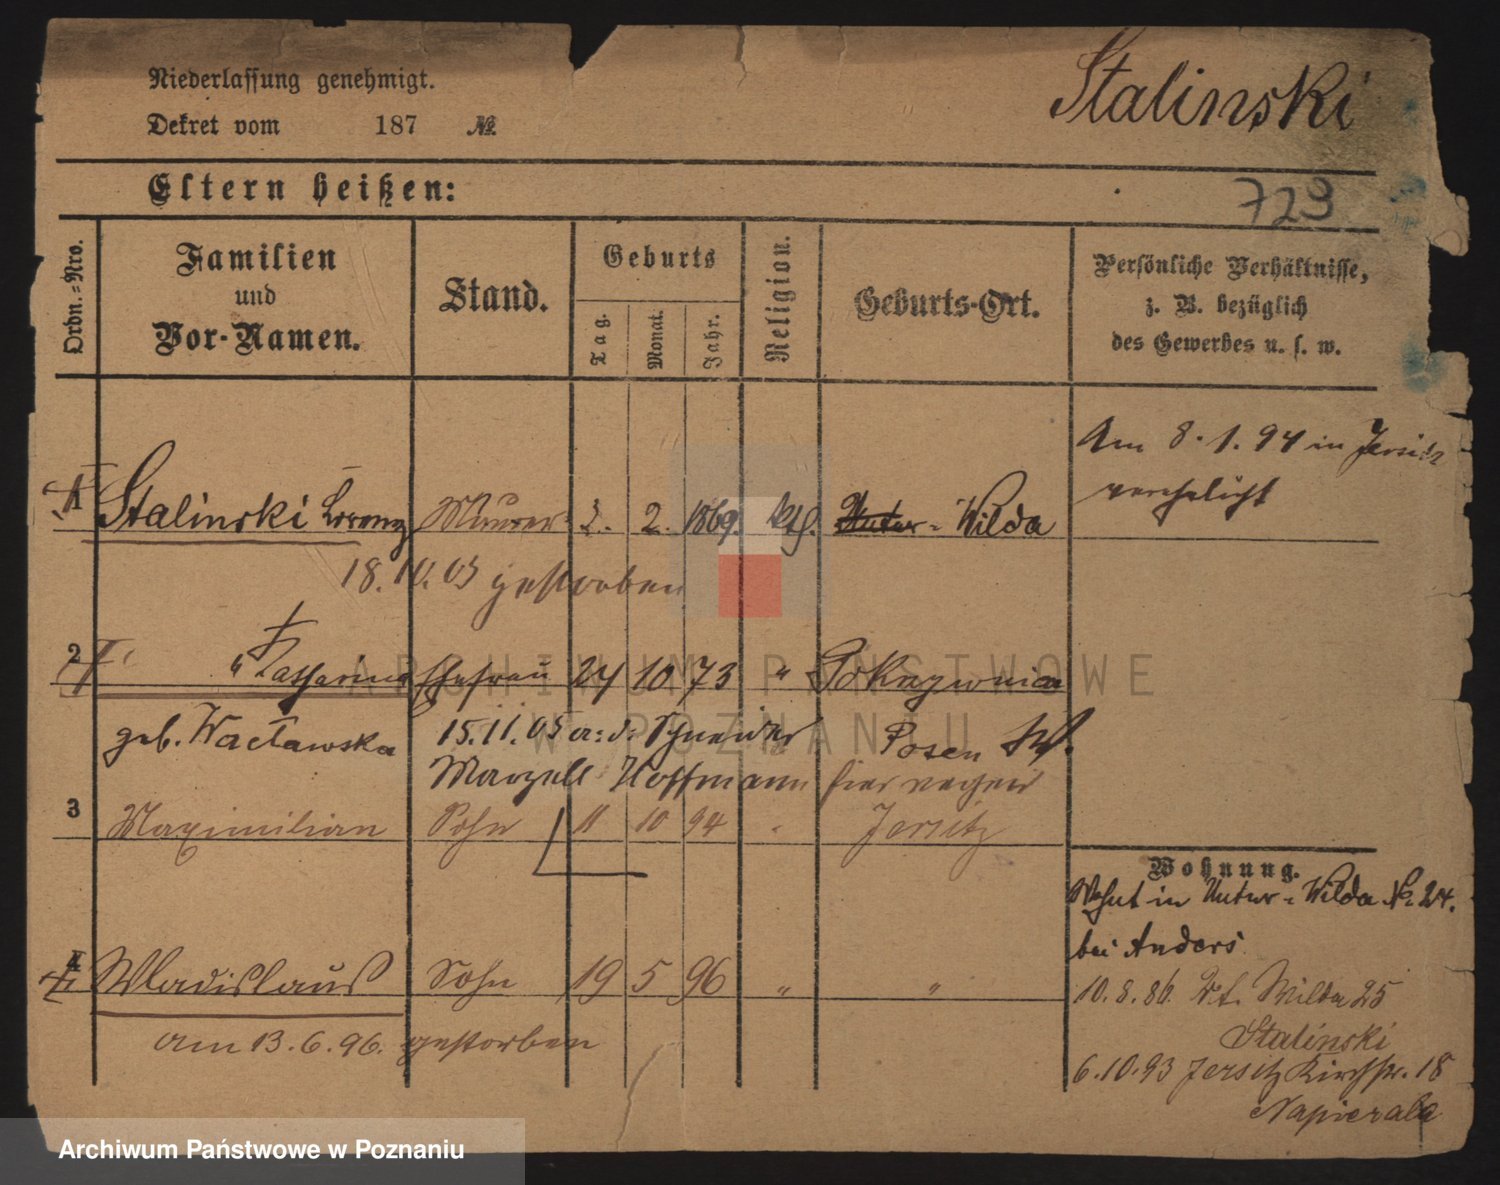 Niederlassung genehmigt.
Stalinski
Dekret vom 187 №
Eltern heißen:
723
Ordn.-Nro.
Familien
und
Vor-Namen.
Stand.
Geburts
Tag.
Monat.
Jahr.
Religion.
Geburts-Ort.
Persönliche Verhältnisse,
z. B. bezüglich
des Gewerbes u. s. w.
Am 8.1.94 in Jersitz
verehelicht
1 Stalinski Lorenz Maurer 2. 2. 1869. kth. Unter-Wilda
18.10.05 gestorben
2 " Katharina Ehefrau 24 10 73 " Pokrzywnica
geb. Wacławska 15.11.05 a. d. Schneider Posen W.
Marzell Hoffmann hier
3 Maximilian Sohn 11 10 94 " Jersitz
Wohnung.
Wohnt in Unter-Wilda № 24.
bei Anders
4 Wladislaus Sohn 19 5 96 " "
10.8.86. Wilda 25
am 13.6.96. gestorben
Stalinski
6.10.93 Jersitz Kirchstr. 18
Napierala
ARCHIWUM PAŃSTWOWE
W POZNANIU
Archiwum Państwowe w Poznaniu